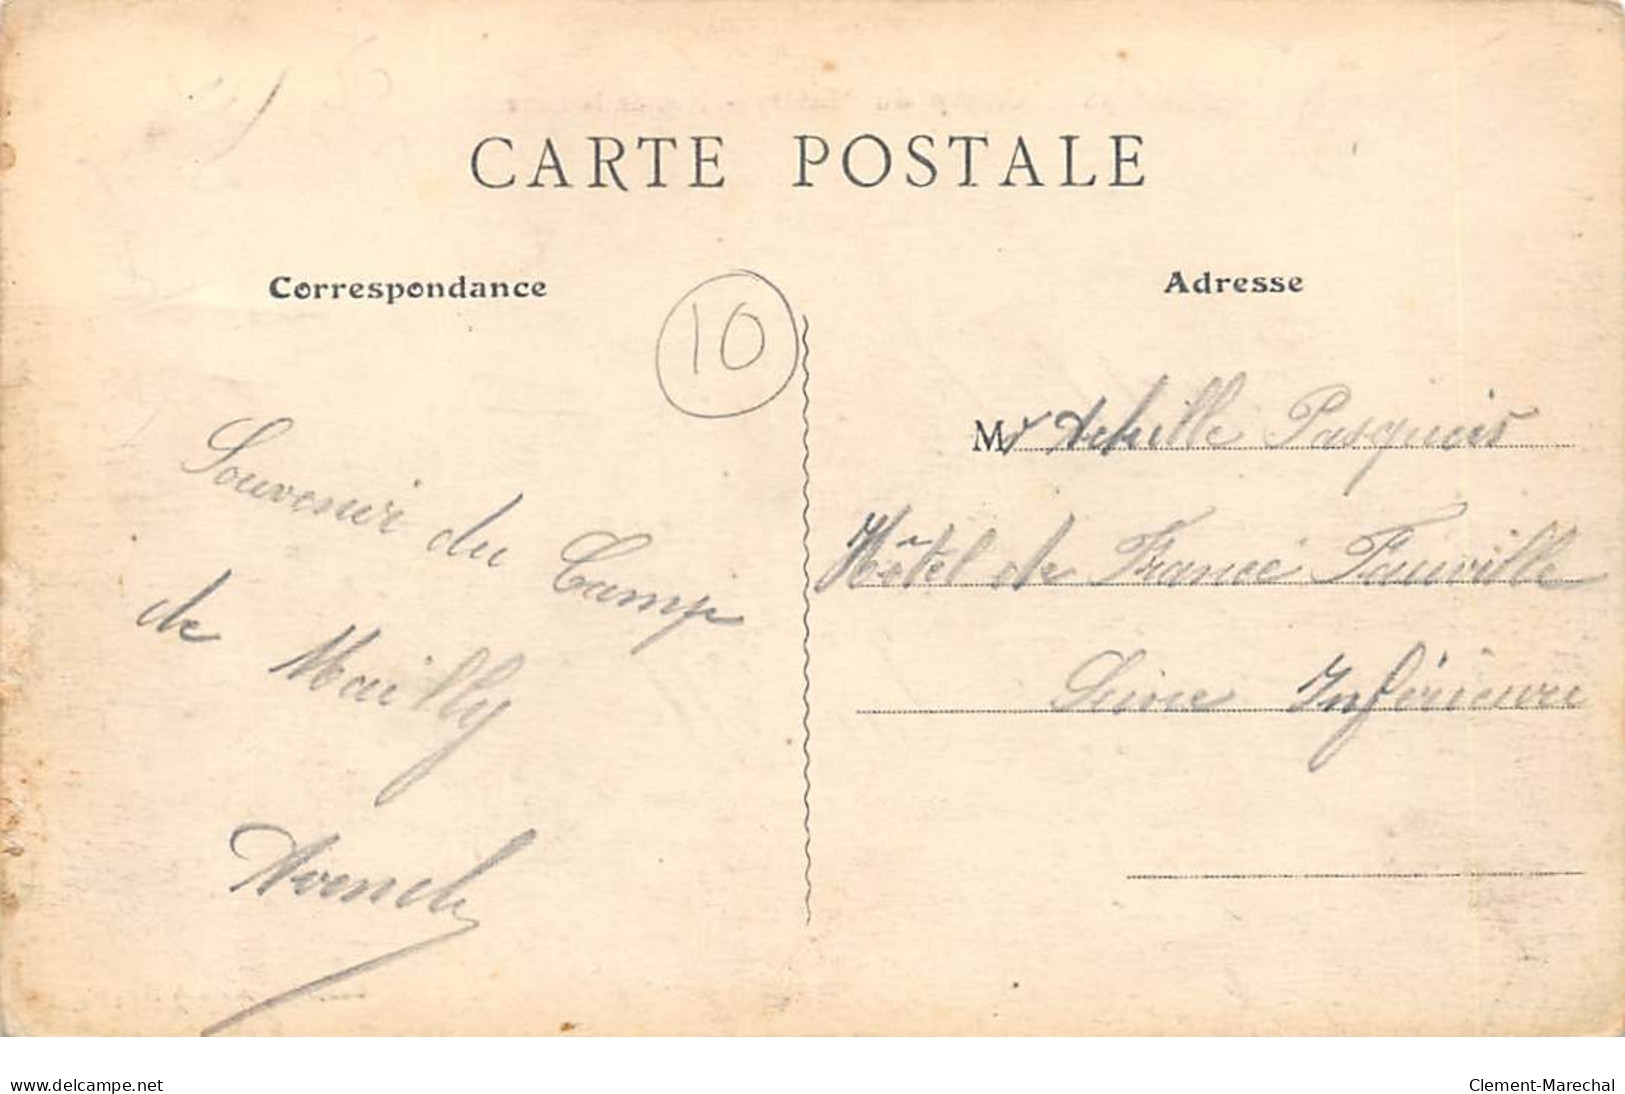 CARTE POSTALE
Correspondance
Adresse
10
Souvenir du Camp
de Mailly
M r Achille Pasquis
Hôtel de France Fauville
Seine Inférieure
www.delcampe.net
Clement-Marechal